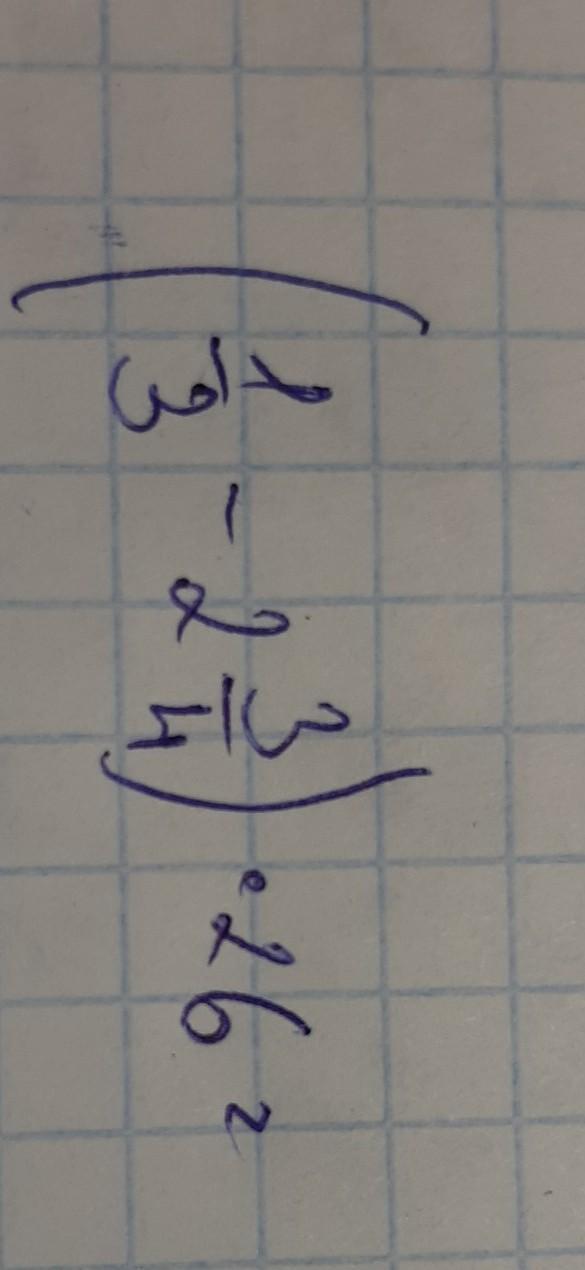 (1/3 - 2 3/4) · 16 =